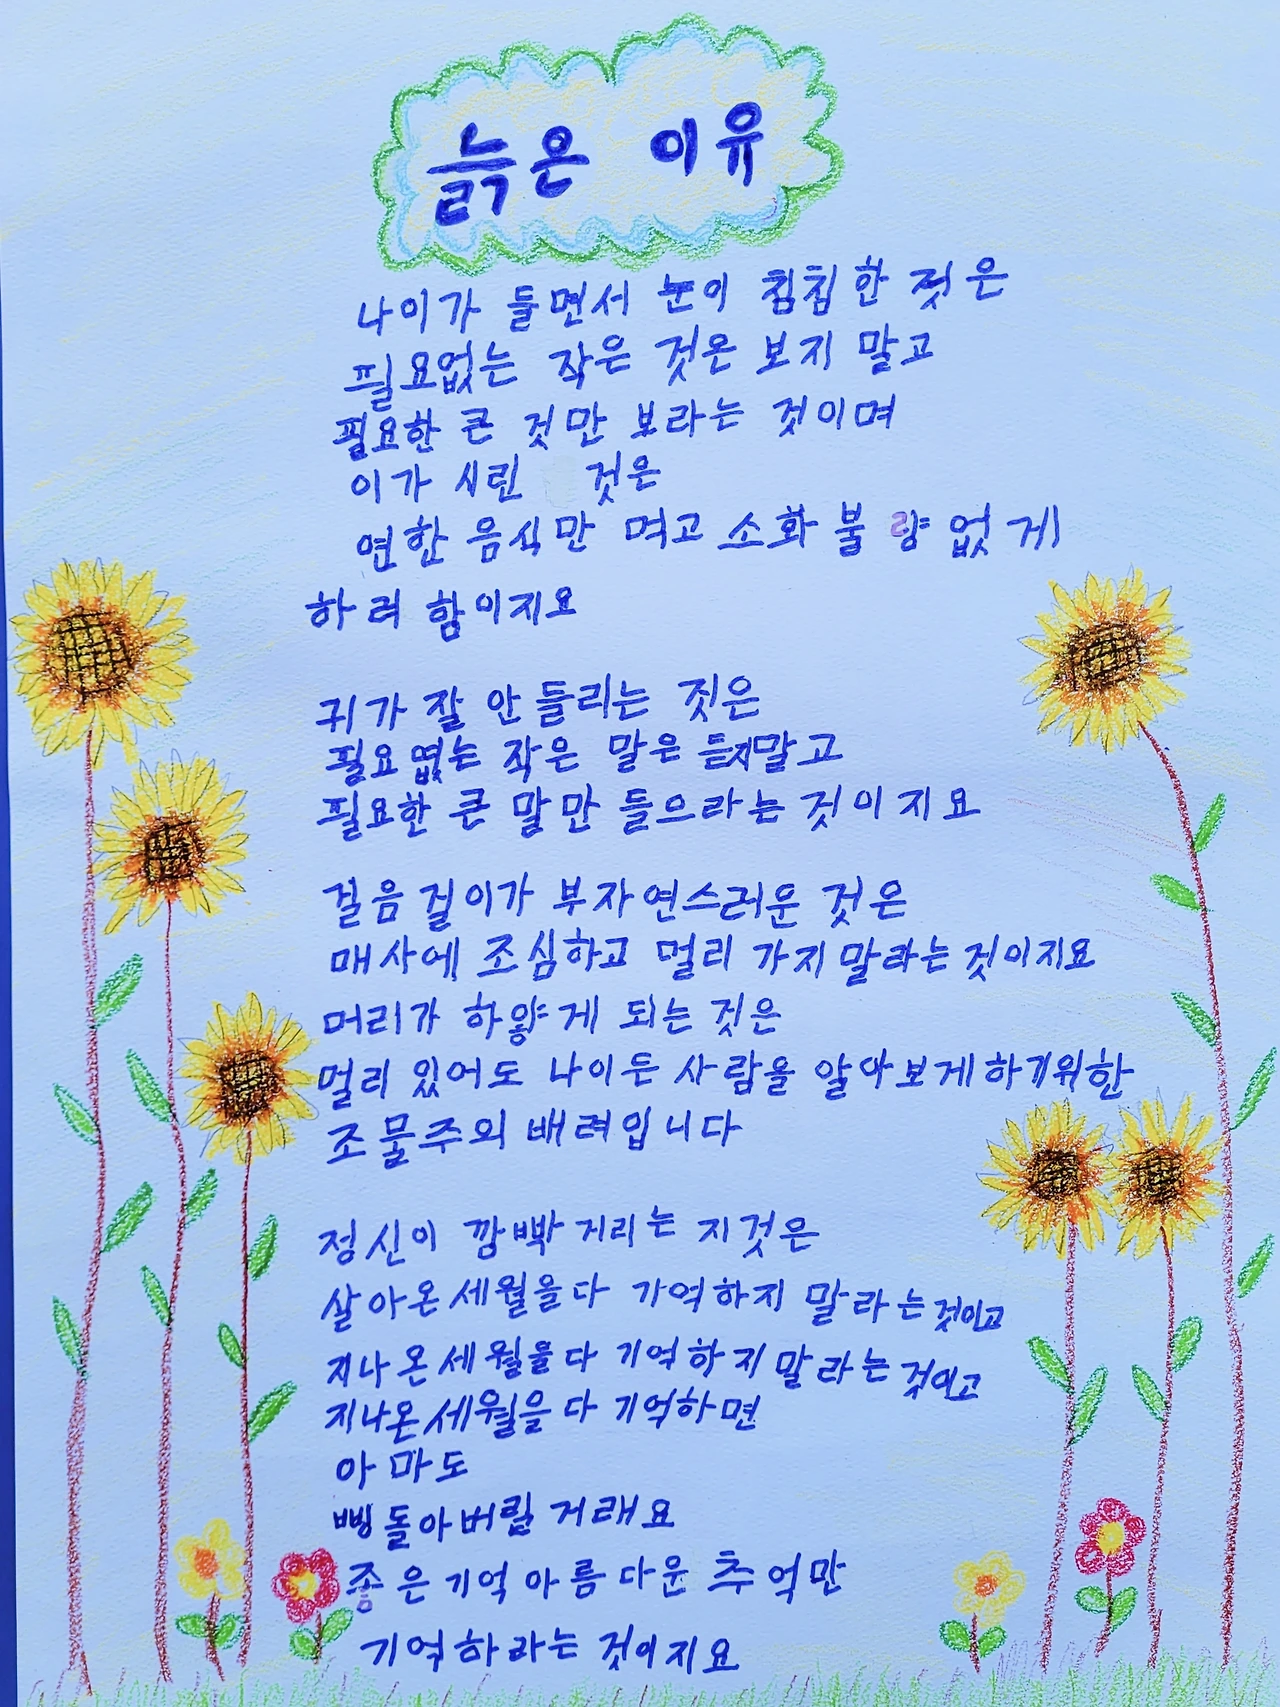 늙은 이유
나이가 들면서 눈이 침침한 젓은
필요없는 작은 것은 보지 말고
필요한 큰 것만 보라는 것이며
이가 시린 것은
연한 음식만 먹고 소화 불량 없게
하려 함이지요
귀가 잘 안 들리는 짓은
필요 없는 작은 말은 듣지말고
필요한 큰 말만 들으라는 것이지요
걸음걸이가 부자연스러운 것은
매사에 조심하고 멀리 가지 말라는 것이지요
머리가 하얗게 되는 것은
멀리 있어도 나이든 사람을 알아보게하기위한
조물주의 배려입니다
정신이 깜빡 거리는 지것은
살아온 세월을다 기억하지 말라는것이고
지나온 세월을다 기억하지 말라는 것이고
지나온 세월을 다 기억하면
아마도
삥돌아버릴 거래요
좋은 기억 아름다운 추억만
기억하라는 것이지요